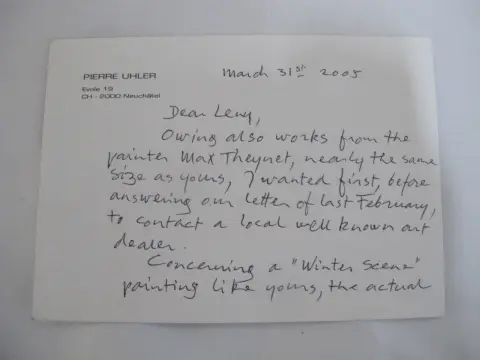 PIERRE UHLER
Evole 19
CH - 2000 Neuchâtel
March 31st 2005
Dear Leny,
Owing also works from the
painter Max Theynet, nearly the same
size as yours, I wanted first, before
answering our letter of last February,
to contact a local well known art
dealer.
Concerning a "Winter Scene"
painting like yours, the actual